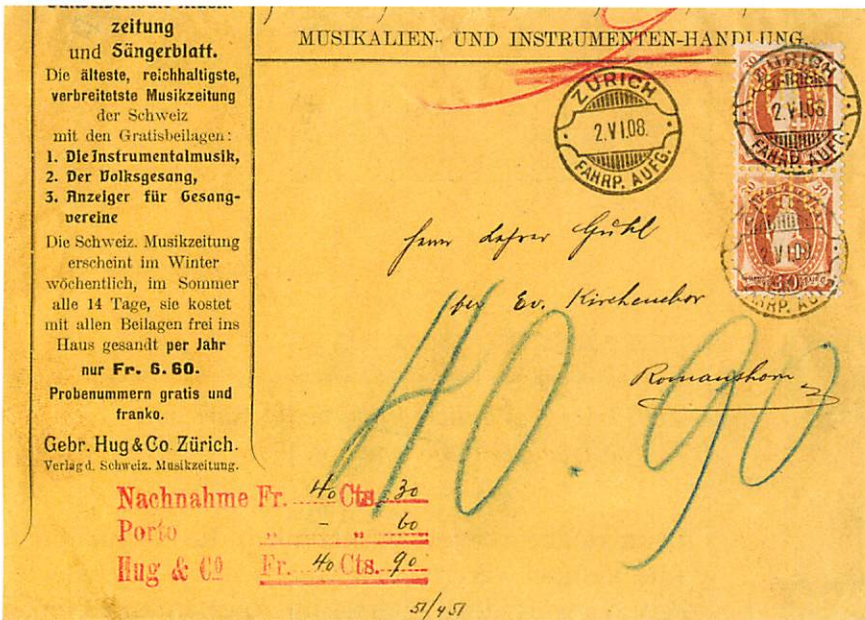 zeitung
und Sängerblatt.
Die älteste, reichhaltigste,
verbreitetste Musikzeitung
der Schweiz
mit den Gratisbeilagen:
1. Die Instrumentalmusik,
2. Der Volksgesang,
3. Anzeiger für Gesang-
vereine
Die Schweiz. Musikzeitung
erscheint im Winter
wöchentlich, im Sommer
alle 14 Tage, sie kostet
mit allen Beilagen frei ins
Haus gesandt per Jahr
nur Fr. 6.60.
Probenummern gratis und
franko.
Gebr. Hug & Co. Zürich.
Verlag d. Schweiz. Musikzeitung.
MUSIKALIEN- UND INSTRUMENTEN-HANDLUNG.
ZÜRICH
2.VI.08.
FAHRP. AUFG.
ZÜRICH
2.VI.08.
FAHRP. AUFG.
30
30 30
30
2.VI.08.
FAHRP. AUFG.
Herrn Lehrer Guhl
per Ev. Kirchenchor
Romanshorn
40.90
Nachnahme Fr. 40 Cts. 30
Porto „ - „ 60
Hug & Co Fr. 40 Cts. 90
51/451